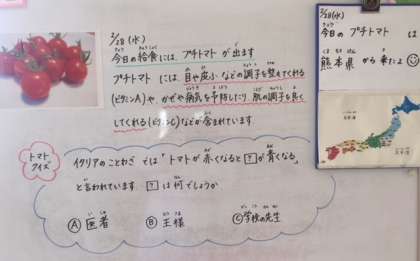 2/28(水)
今日の給食には、プチトマトが出ます
プチトマトには目や皮ふなどの調子を整えてくれる
(ビタンA)や、かぜや病気を予防したり、肌の調子を良く
してくれる(ビタミンC)などが含まれています
トマト
クイズ
イタリアのことわざでは「トマトが赤くなると?が青くなる」
と言われています。?は何でしょうか
Ⓐ医者 Ⓑ王様 Ⓒ学校の先生
2/28(水)
今日のプチトマトは
熊本県から来たよ